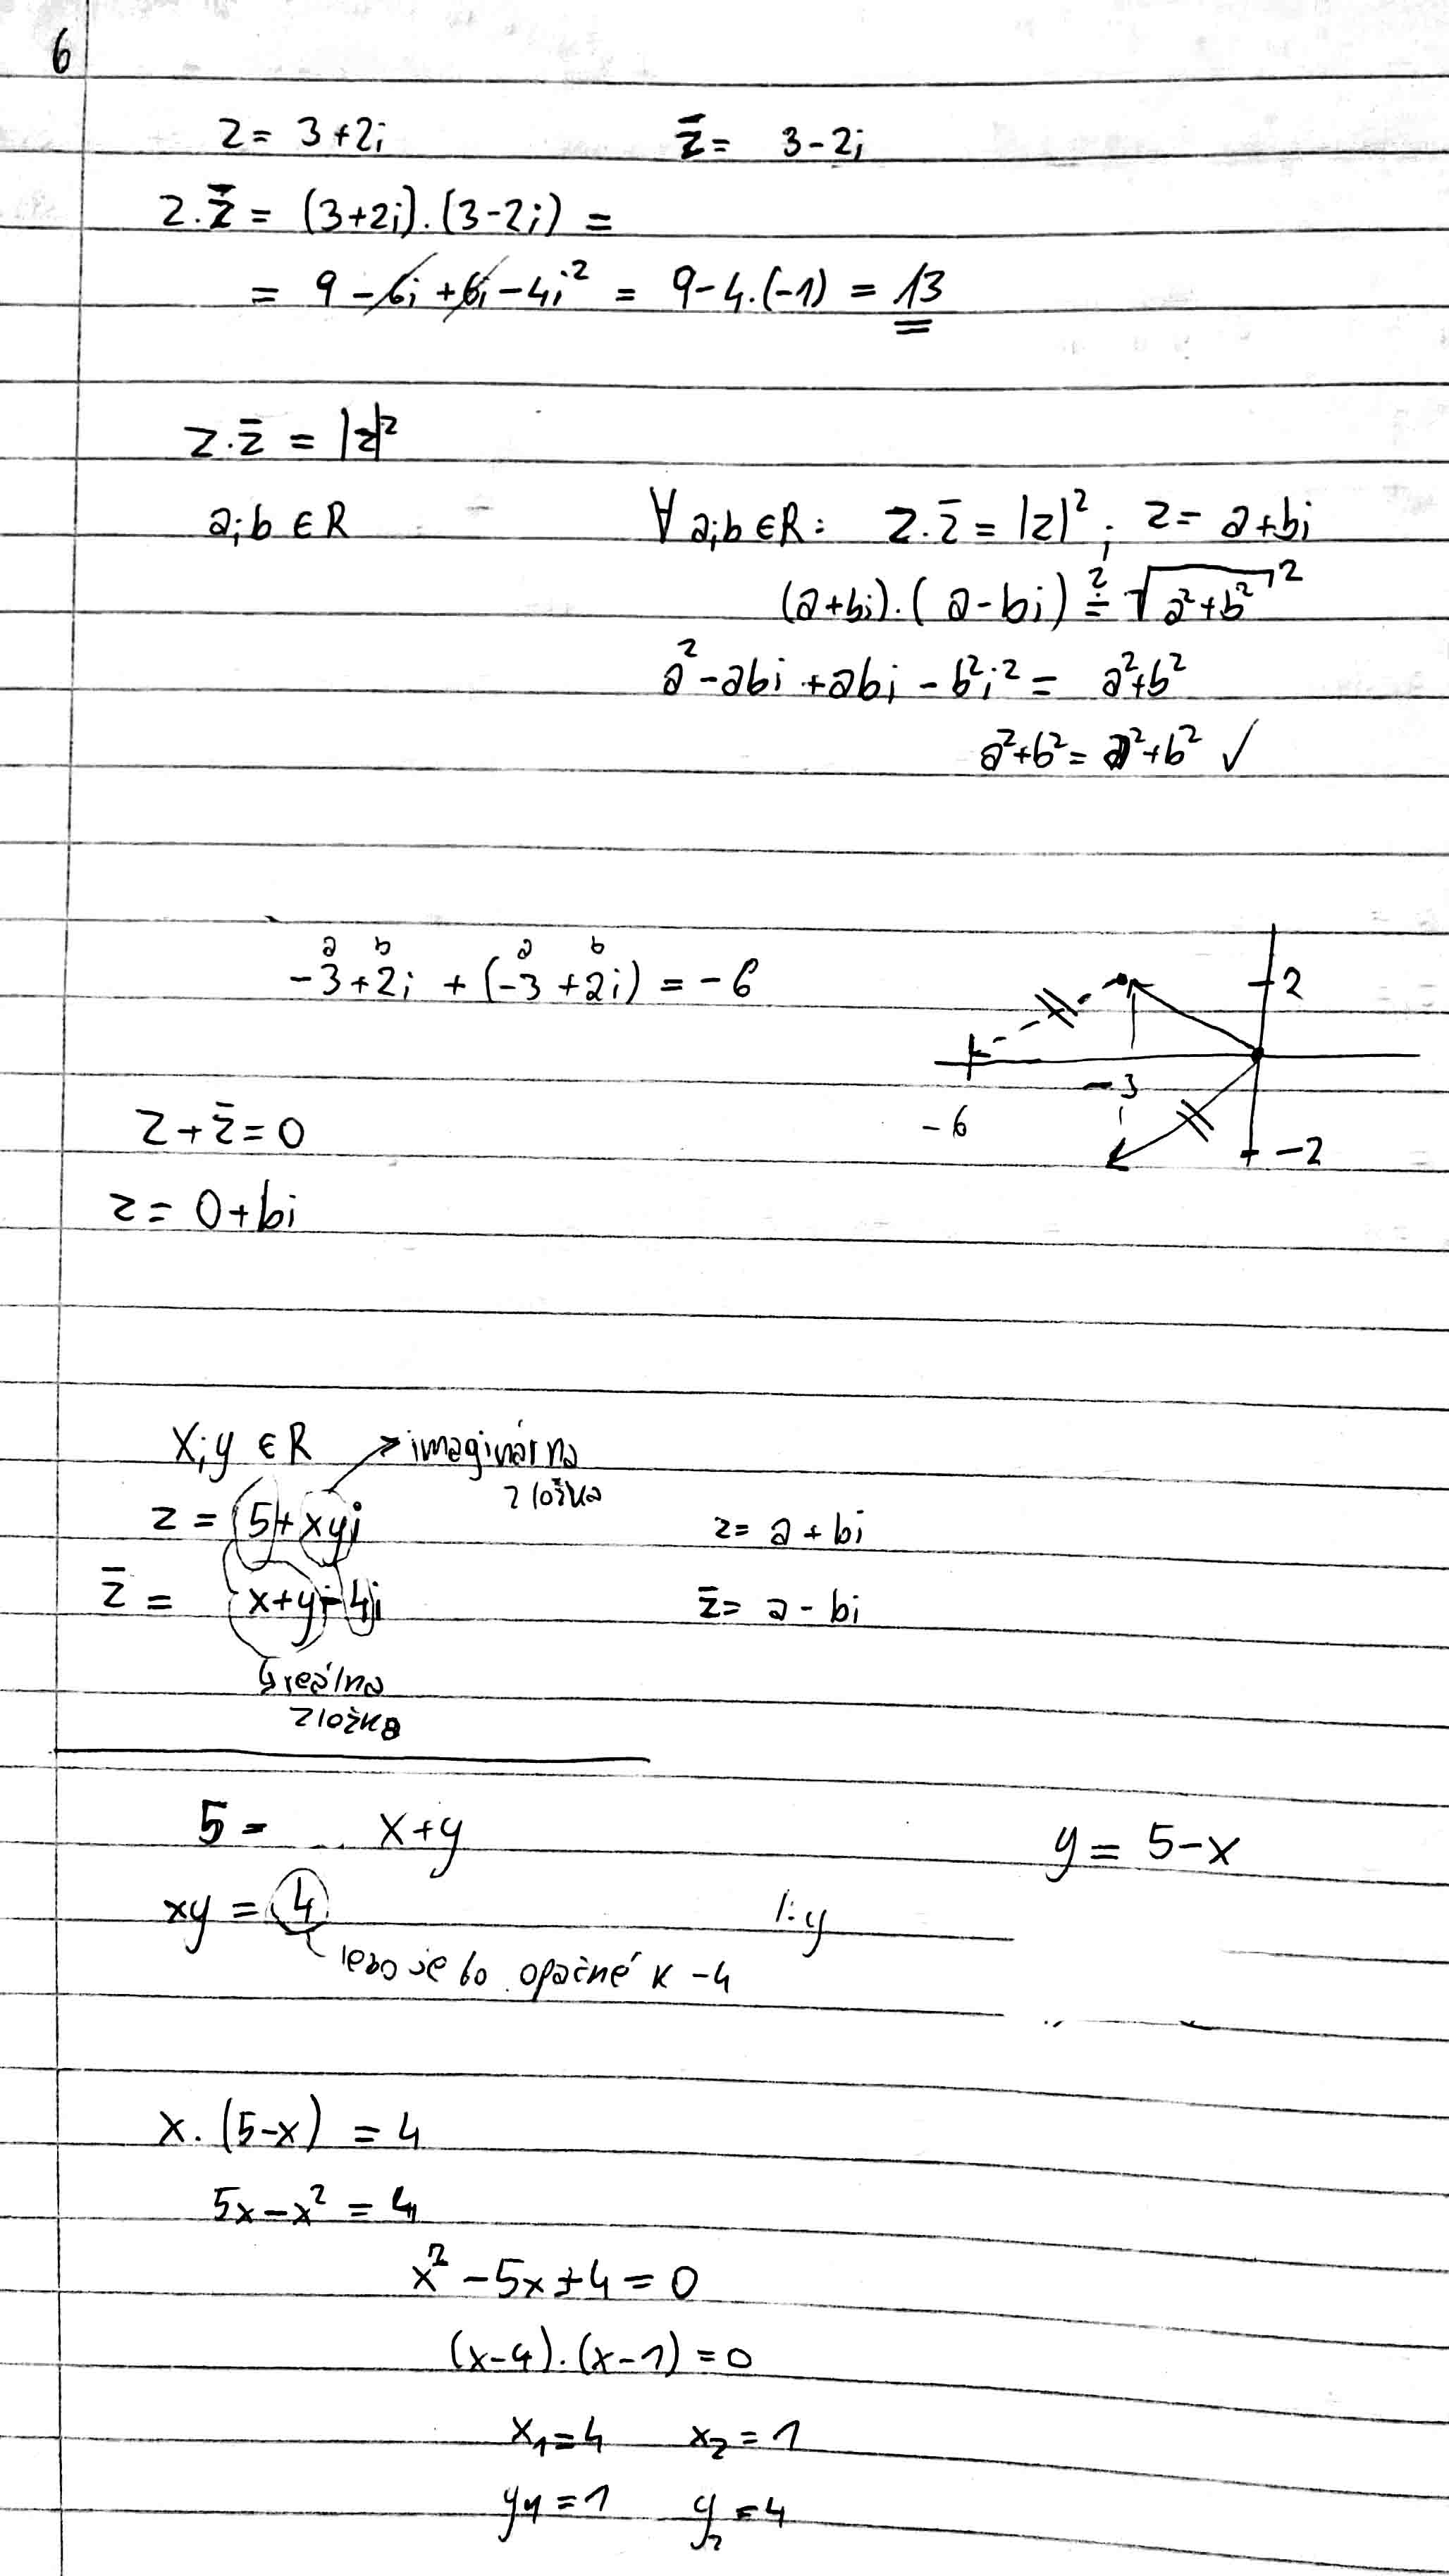 6
z = 3+2i z̄ = 3-2i
z.z̄ = (3+2i).(3-2i) =
= 9 - 6i + 6i - 4i² = 9-4.(-1) = 13
z.z̄ = |z|²
a;b ∈ R ∀ a;b ∈ R: z.z̄ = |z|²; z = a+bi
(a+bi).(a-bi) ≟ √a²+b²²
a² - abi + abi - b²i² = a²+b²
a²+b² = a²+b² ✓
a b a b
-3+2i + (-3+2i) = -6
2
-3
-6
-2
z + z̄ = 0
z = 0+bi
x;y ∈ R → imaginárna
zložka
z = 5+xyi z = a+bi
z̄ = x+y-4i z̄ = a-bi
↳ reálna
zložka
5 = x+y y = 5-x
xy = 4 /:y
lebo je to opačné k -4
x.(5-x) = 4
5x-x² = 4
x²-5x+4=0
(x-4).(x-1)=0
x₁=4 x₂=1
y₁=1 y₂=4